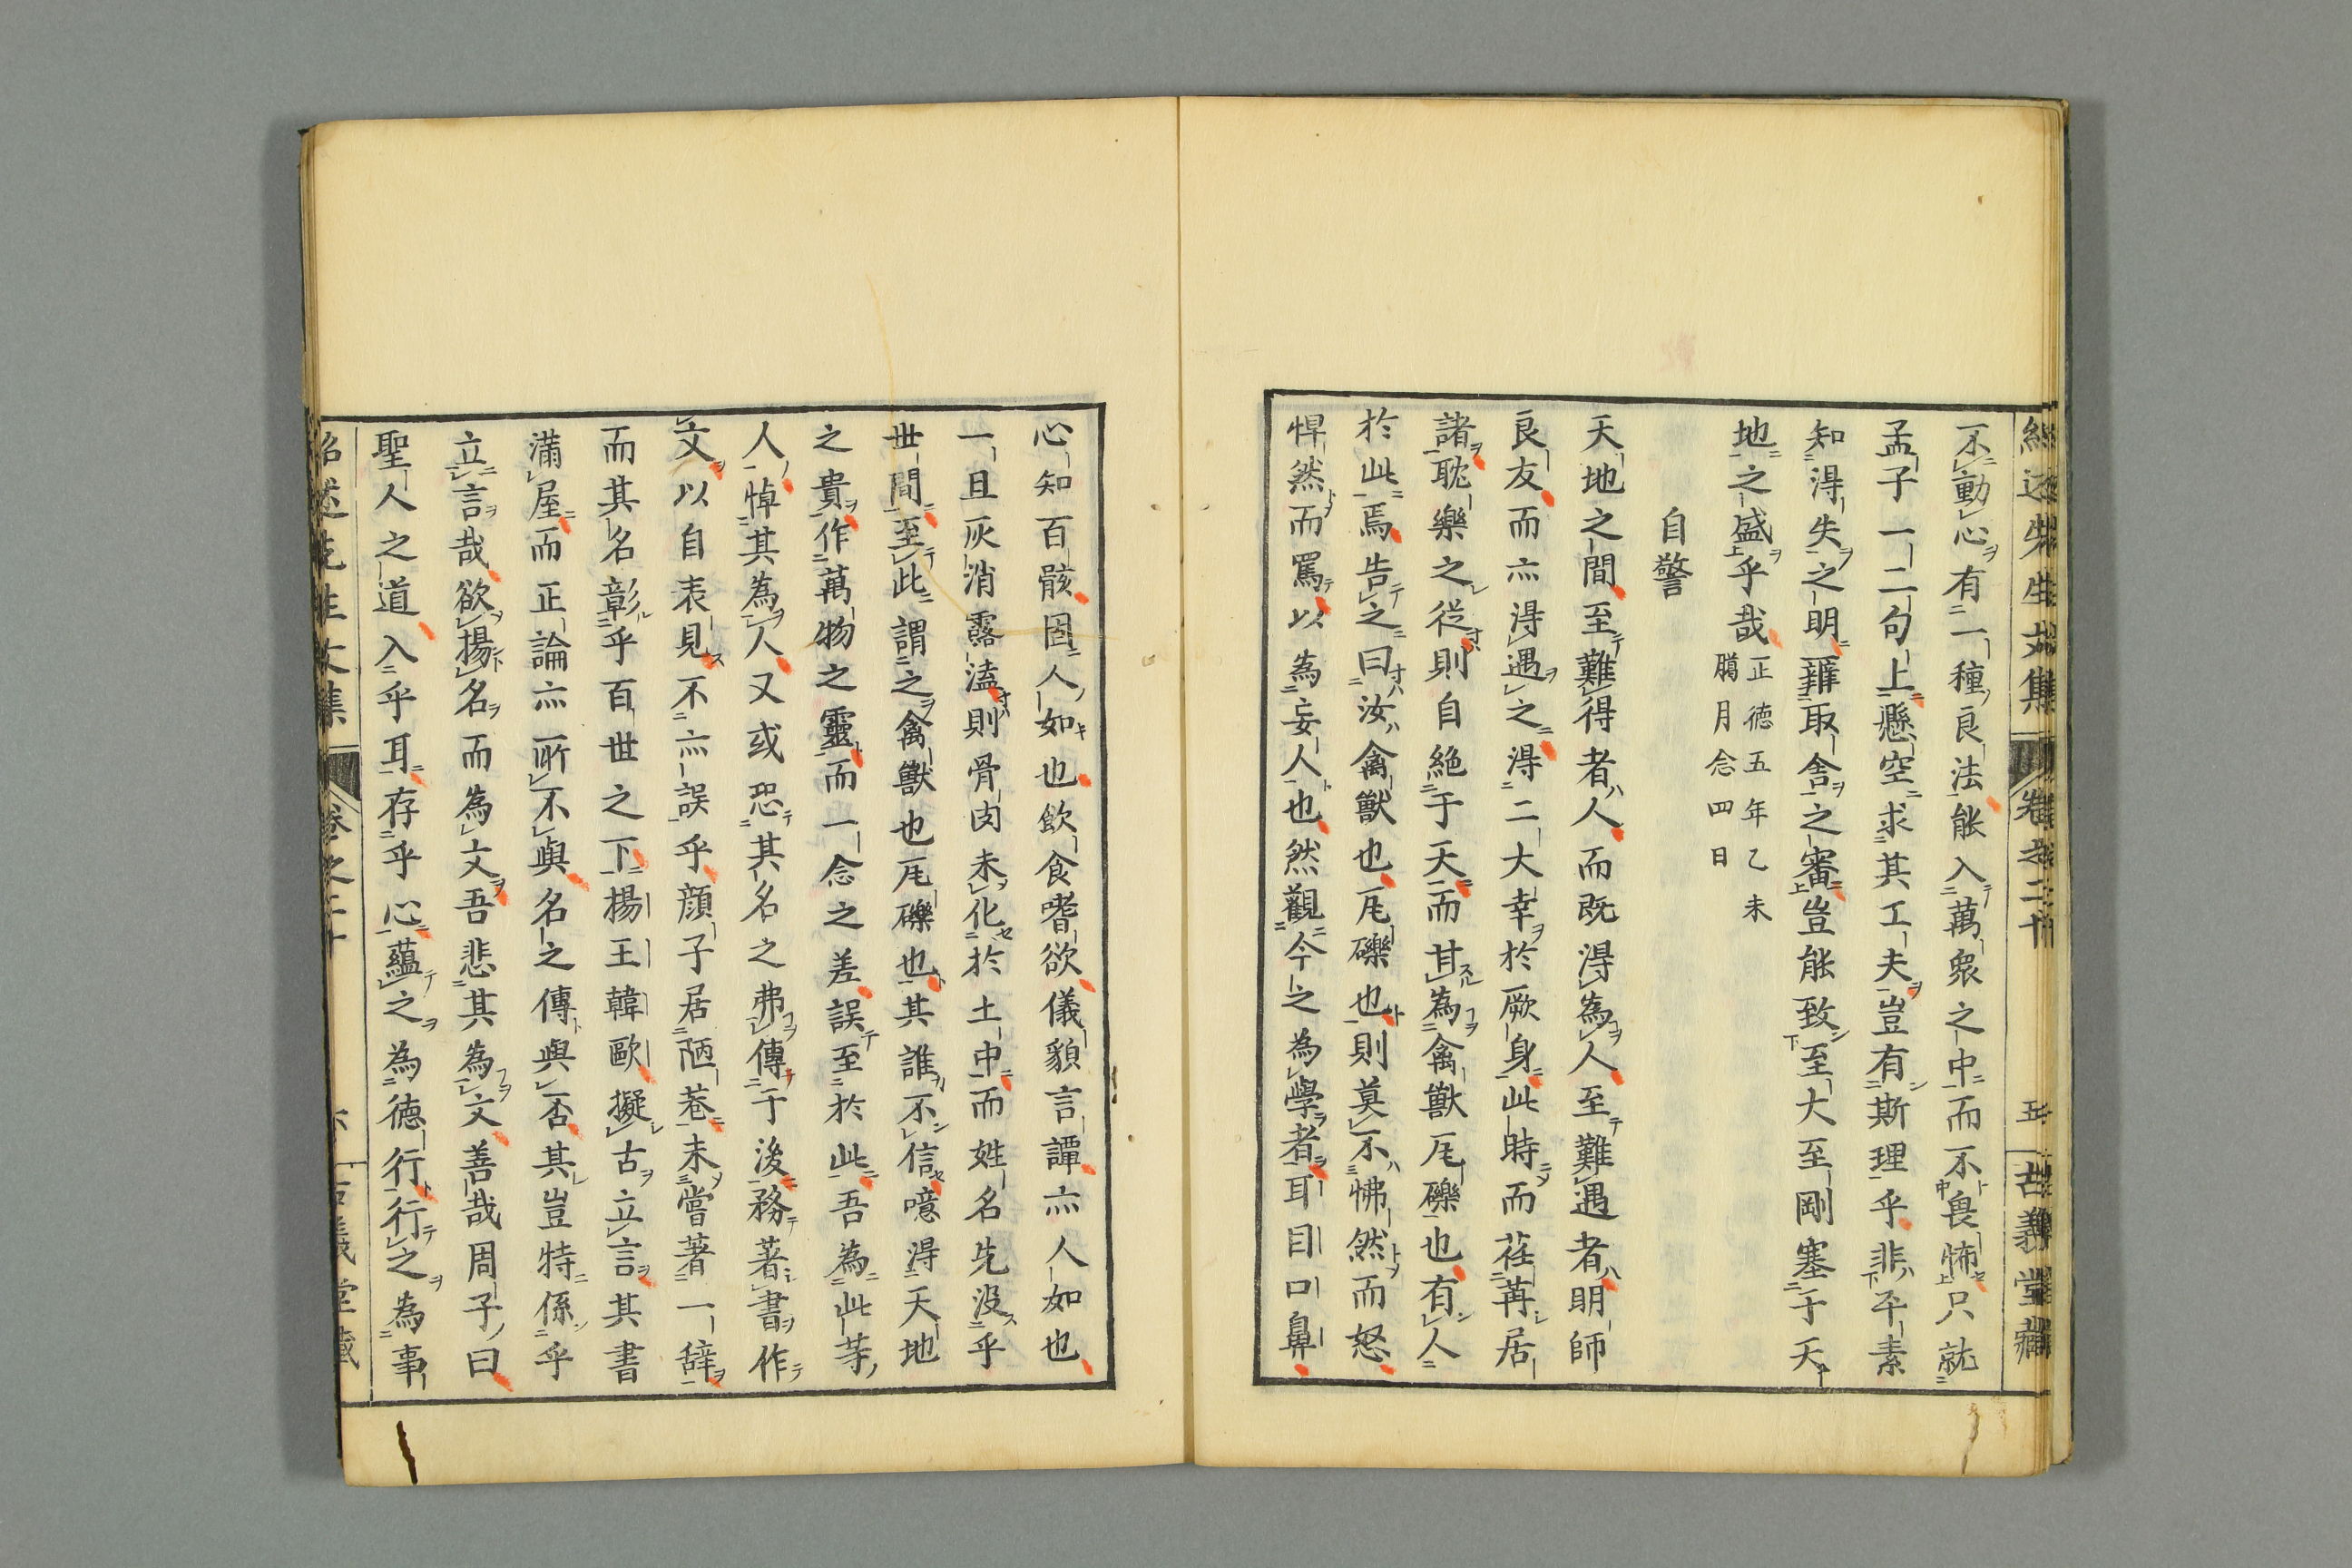 紹述先生文集 卷之二十 五 古義堂藏
不動心有一種良法能入萬衆之中而不畏怖只就
孟子一二句上懸空求其工夫豈有斯理乎非平素
知得失之明辨取舍之審豈能致至大至剛塞于天
地之盛乎哉正德五年乙未
臈月念四日
自警
天地之間至難得者人而既得為人至難遇者明師
良友而亦得遇之得二大幸於厥身此時而荏苒居
諸耽樂之從則自絶于天而甘為禽獸瓦礫也有人
於此焉告之曰汝禽獸也瓦礫也則莫不怫然而怒
悍然而罵以為妄人也然觀今之為學者耳目口鼻
心知百骸固人如也飲食嗜欲儀貌言譚亦人如也
一且灰消露溘則骨肉未化於土中而姓名先没乎
世間至此謂之禽獸也瓦礫也其誰不信噫得天地
之貴作萬物之靈而一念之差誤至於此吾為此等
人悼其為人又或恐其名之弗傳于後務著書作
文以自表見不亦誤乎顔子居陋巷未嘗著一辞
而其名彰乎百世之下揚王韓歐擬古立言其書
滿屋而正論亦所不與名之傳與否其豈特係乎
立言哉欲揚名而為文吾悲其為文善哉周子曰
聖人之道入乎耳存乎心蘊之為德行行之為事
紹述先生文集 卷之二十 六 古義堂藏